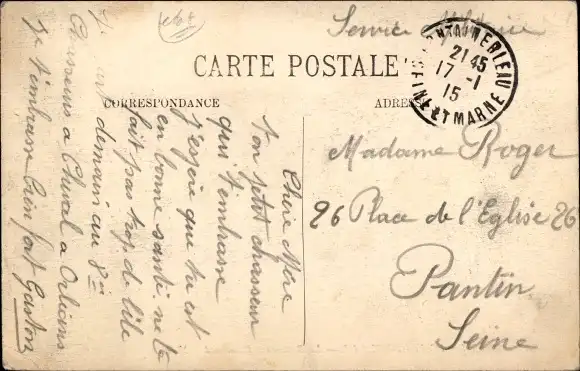 Service Militaire
FONTAINEBLEAU
21 45
17 -1
15
SEINE ET MARNE
CARTE POSTALE
CORRESPONDANCE
ADRESSE
Chère Mère
Ton petit chasseur
qui t'embrasse
j'espère que tu est
en bonne santé ne te
fait pas trop de bile
demain au 8e
Chasseurs a Cheval a Orléans
Je t'embrasse bien fort Gaston
Madame Roger
26 Place de l'Eglise 26
Pantin
Seine